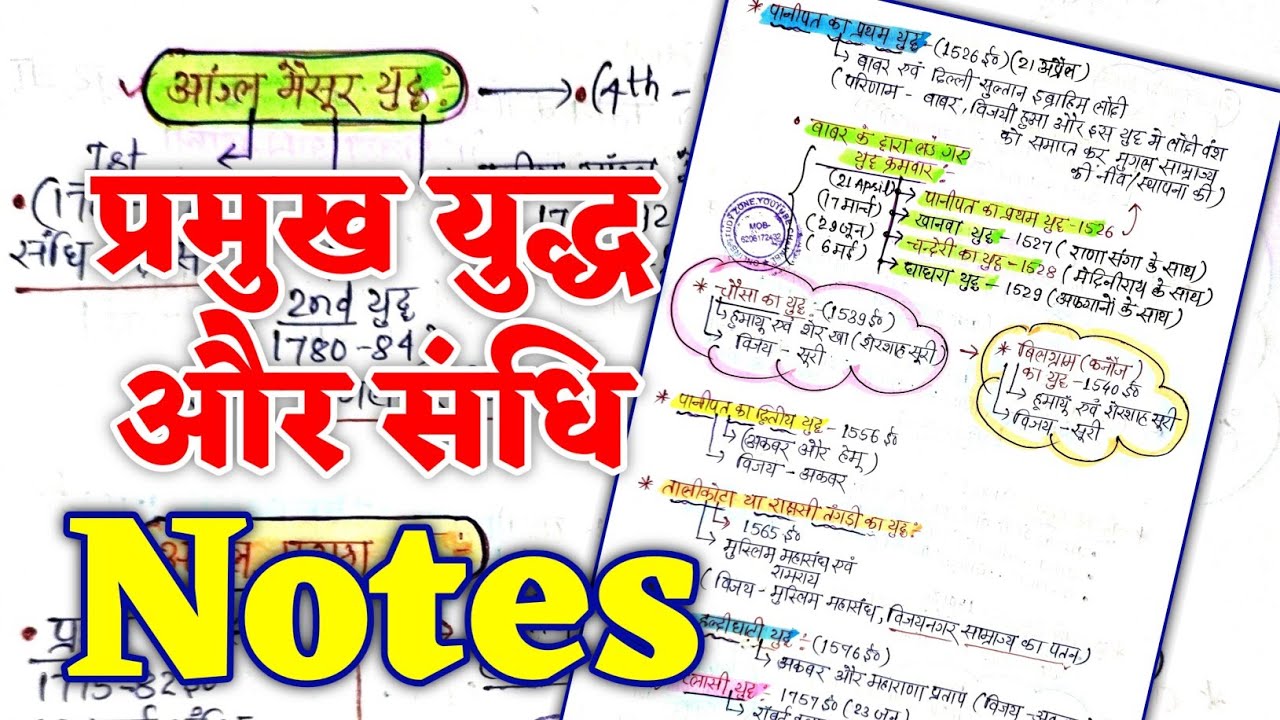 आंग्ल मैसूर युद्ध :-
(4th -
1st
(17
संधि
2nd युद्ध
1780-84
प्रमुख युद्ध
और संधि
Notes
1775-82ई०
* पानीपत का प्रथम युद्ध - (1526 ई०) (21 अप्रैल)
↳ बाबर एवं दिल्ली सुल्तान इब्राहिम लोदी
(परिणाम - बाबर, विजयी हुआ और इस युद्ध में लोदी वंश
को समाप्त कर मुगल साम्राज्य
की नींव/स्थापना की)
• बाबर के द्वारा लड़े गए
युद्ध क्रमवार :-
(21 April) पानीपत का प्रथम युद्ध - 1526
(17 मार्च) खानवा युद्ध - 1527 (राणा सांगा के साथ)
(29 जून) चन्देरी का युद्ध - 1528 (मेदिनीराय के साथ)
(6 मई) घाघरा युद्ध - 1529 (अफगानों के साथ)
STUDY ZONE YOUTUBE CHANNEL
MOB-
6206172432
* चौसा का युद्ध :- (1539 ई०)
↳ हुमायूं एवं शेर खां (शेरशाह सूरी)
↳ विजय - सूरी
→ * बिलग्राम (कन्नौज)
का युद्ध - 1540 ई०
↳ हुमायूं एवं शेरशाह सूरी
↳ विजय - सूरी
* पानीपत का द्वितीय युद्ध - 1556 ई०
↳ (अकबर और हेमू)
↳ विजय - अकबर
* तालीकोटा या राक्षसी तंगडी का युद्ध :-
↳ 1565 ई०
↳ मुस्लिम महासंघ एवं
रामराय
(विजय - मुस्लिम महासंघ, विजयनगर साम्राज्य का पतन)
हल्दीघाटी युद्ध :- (1576 ई०)
↳ अकबर और महाराणा प्रताप (विजय -
लासी युद्ध :- 1757 ई० (23 जून)